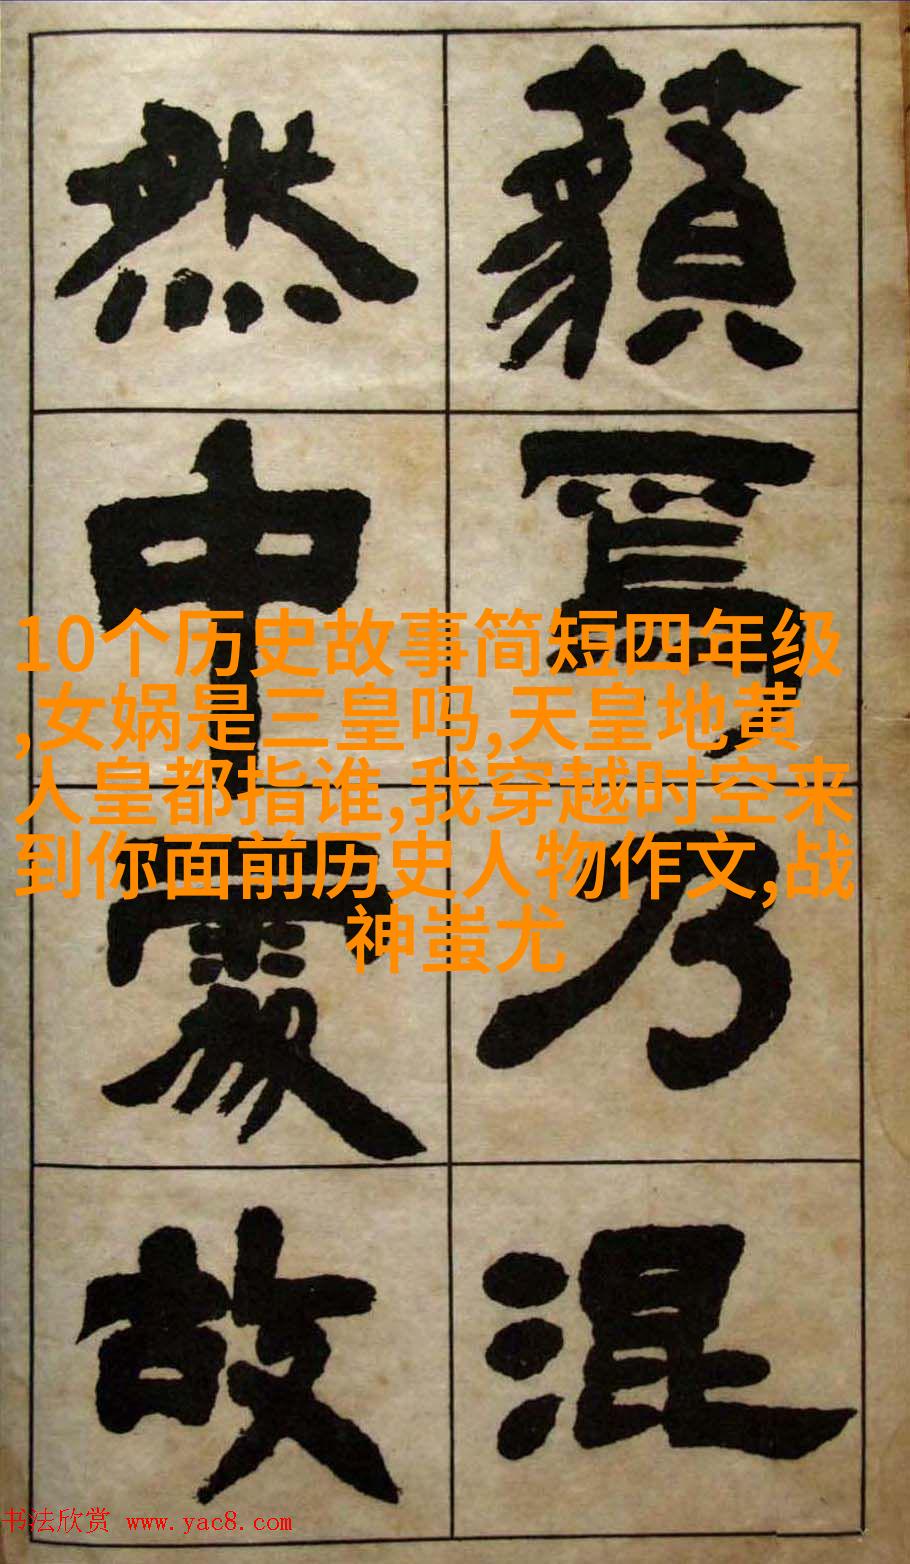 藐焉乃混
然中處故
10个历史故事简短四年级
,女娲是三皇吗,天皇地黄
人皇都指谁,我穿越时空来
到你面前历史人物作文,战
神蚩尤
书法欣赏 www.yac8.com